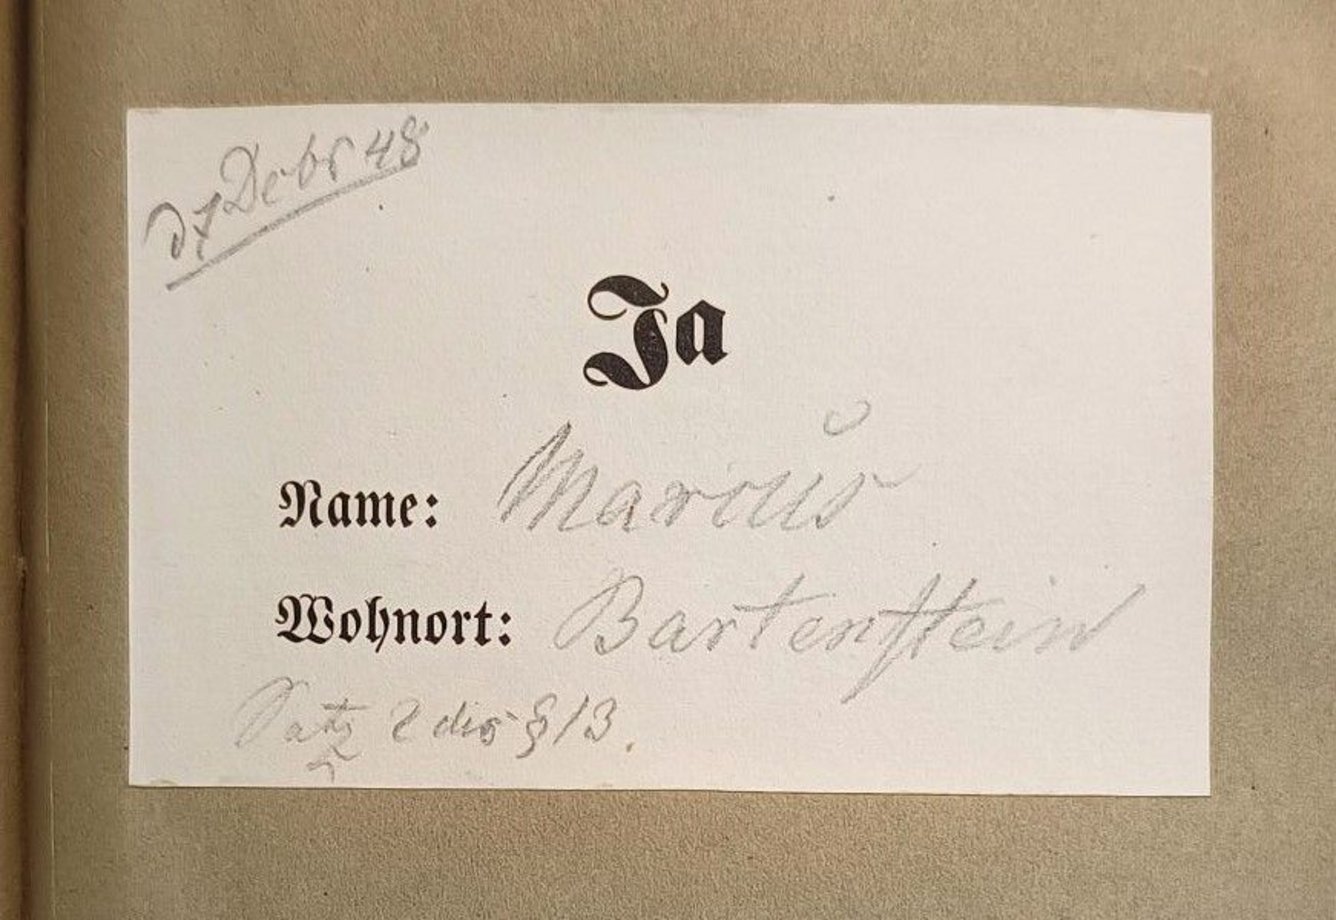 d 7 Debr 48
Ja
Name: Marcus
Wohnort: Bartenstein
Satz 2 des § 13.